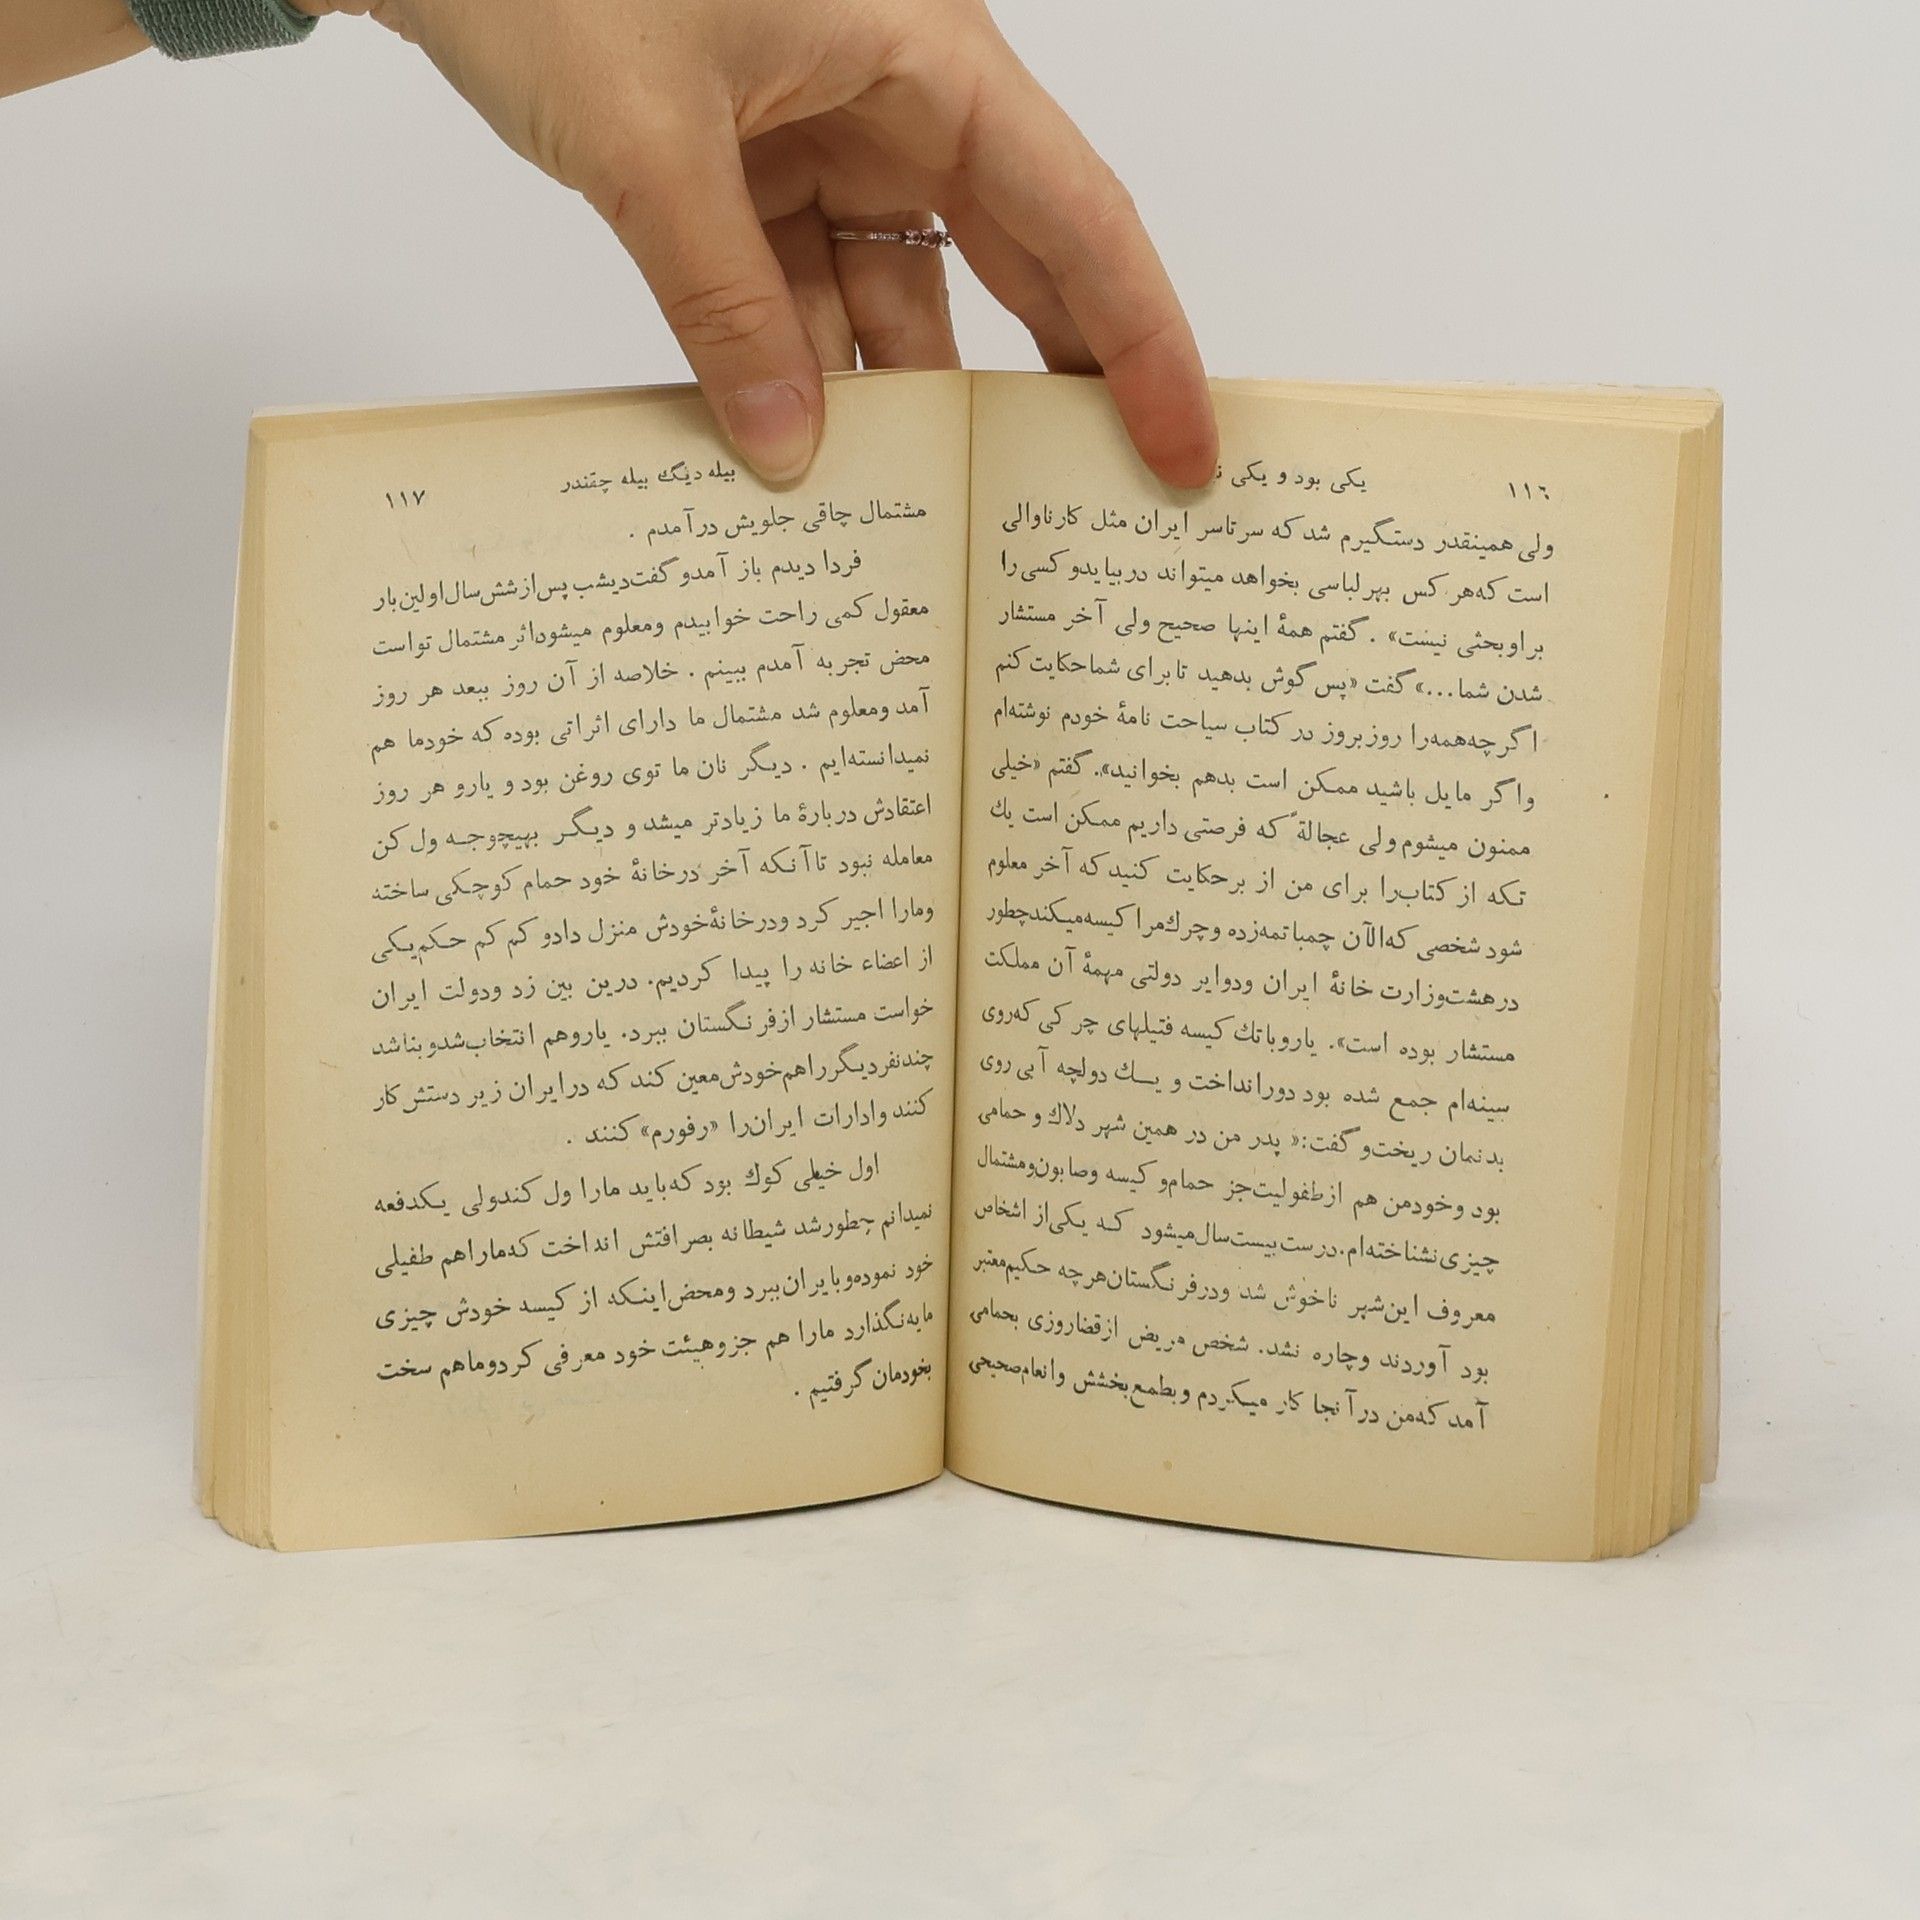 ۱۱٦ یکی بود و یکی
ولی همینقدر دستگیرم شد که سرتاسر ایران مثل کارناوالی
است که هر کس بهر لباسی بخواهد میتواند دربیاید و کسی را
براو بحثی نیست» . گفتم همهٔ اینها صحیح ولی آخر مستشار
شدن شما...» گفت «پس گوش بدهید تا برای شما حکایت کنم
اگرچه همه را روز بروز در کتاب سیاحت نامهٔ خودم نوشته‌ام
و اگر مایل باشید ممکن است بدهم بخوانید». گفتم «خیلی
ممنون میشوم ولی عجالةً که فرصتی داریم ممکن است یك
تکه از کتاب را برای من از بر حکایت کنید که آخر معلوم
شود شخصی که الآن چمباتمه زده و چرك مرا کیسه میکند چطور
در هشت وزارت خانهٔ ایران و دوایر دولتی مهمهٔ آن مملکت
مستشار بوده است». یارو باتك کیسه فتیلهای چرکی که روی
سینه‌ام جمع شده بود دور انداخت و یك دولچه آبی روی
بدنمان ریخت و گفت: « پدر من در همین شهر دلاك و حمامی
بود و خود من هم از طفولیت جز حمام و کیسه و صابون و مشتمال
چیزی نشناخته‌ام. درست بیست سال میشود که یکی از اشخاص
معروف این شهر ناخوش شد و در فرنگستان هر چه حکیم معتبر
بود آوردند و چاره نشد. شخص مریض از قضا روزی بحمامی
آمد که من در آنجا کار میکردم و بطمع بخشش و انعام صحیحی
بیله دیگ بیله چقندر ۱۱۷
مشتمال چاقی جلویش درآمدم .
فردا دیدم باز آمد و گفت دیشب پس از شش سال اولین بار
معقول کمی راحت خوابیدم و معلوم میشود اثر مشتمال تو است
محض تجربه آمدم ببینم . خلاصه از آن روز ببعد هر روز
آمد و معلوم شد مشتمال ما دارای اثراتی بوده که خود ما هم
نمیدانسته‌ایم . دیگر نان ما توی روغن بود و یارو هر روز
اعتقادش دربارهٔ ما زیادتر میشد و دیگر بهیچوجه ول کن
معامله نبود تا آنکه آخر در خانهٔ خود حمام کوچکی ساخته
و ما را اجیر کرد و در خانهٔ خودش منزل داد و کم کم حکم یکی
از اعضاء خانه را پیدا کردیم. درین بین زد و دولت ایران
خواست مستشار از فرنگستان ببرد. یارو هم انتخاب شد و بنا شد
چند نفر دیگر را هم خودش معین کند که در ایران زیر دستش کار
کنند و ادارات ایران را «رفورم» کنند .
اول خیلی کوك بود که باید ما را ول کند ولی یکدفعه
نمیدانم چطور شد شیطانه بصرافتش انداخت که ما را هم طفیلی
خود نموده و بایران ببرد و محض اینکه از کیسه خودش چیزی
مایه نگذارد ما را هم جزو هیئت خود معرفی کرد و ما هم سخت
بخودمان گرفتیم .